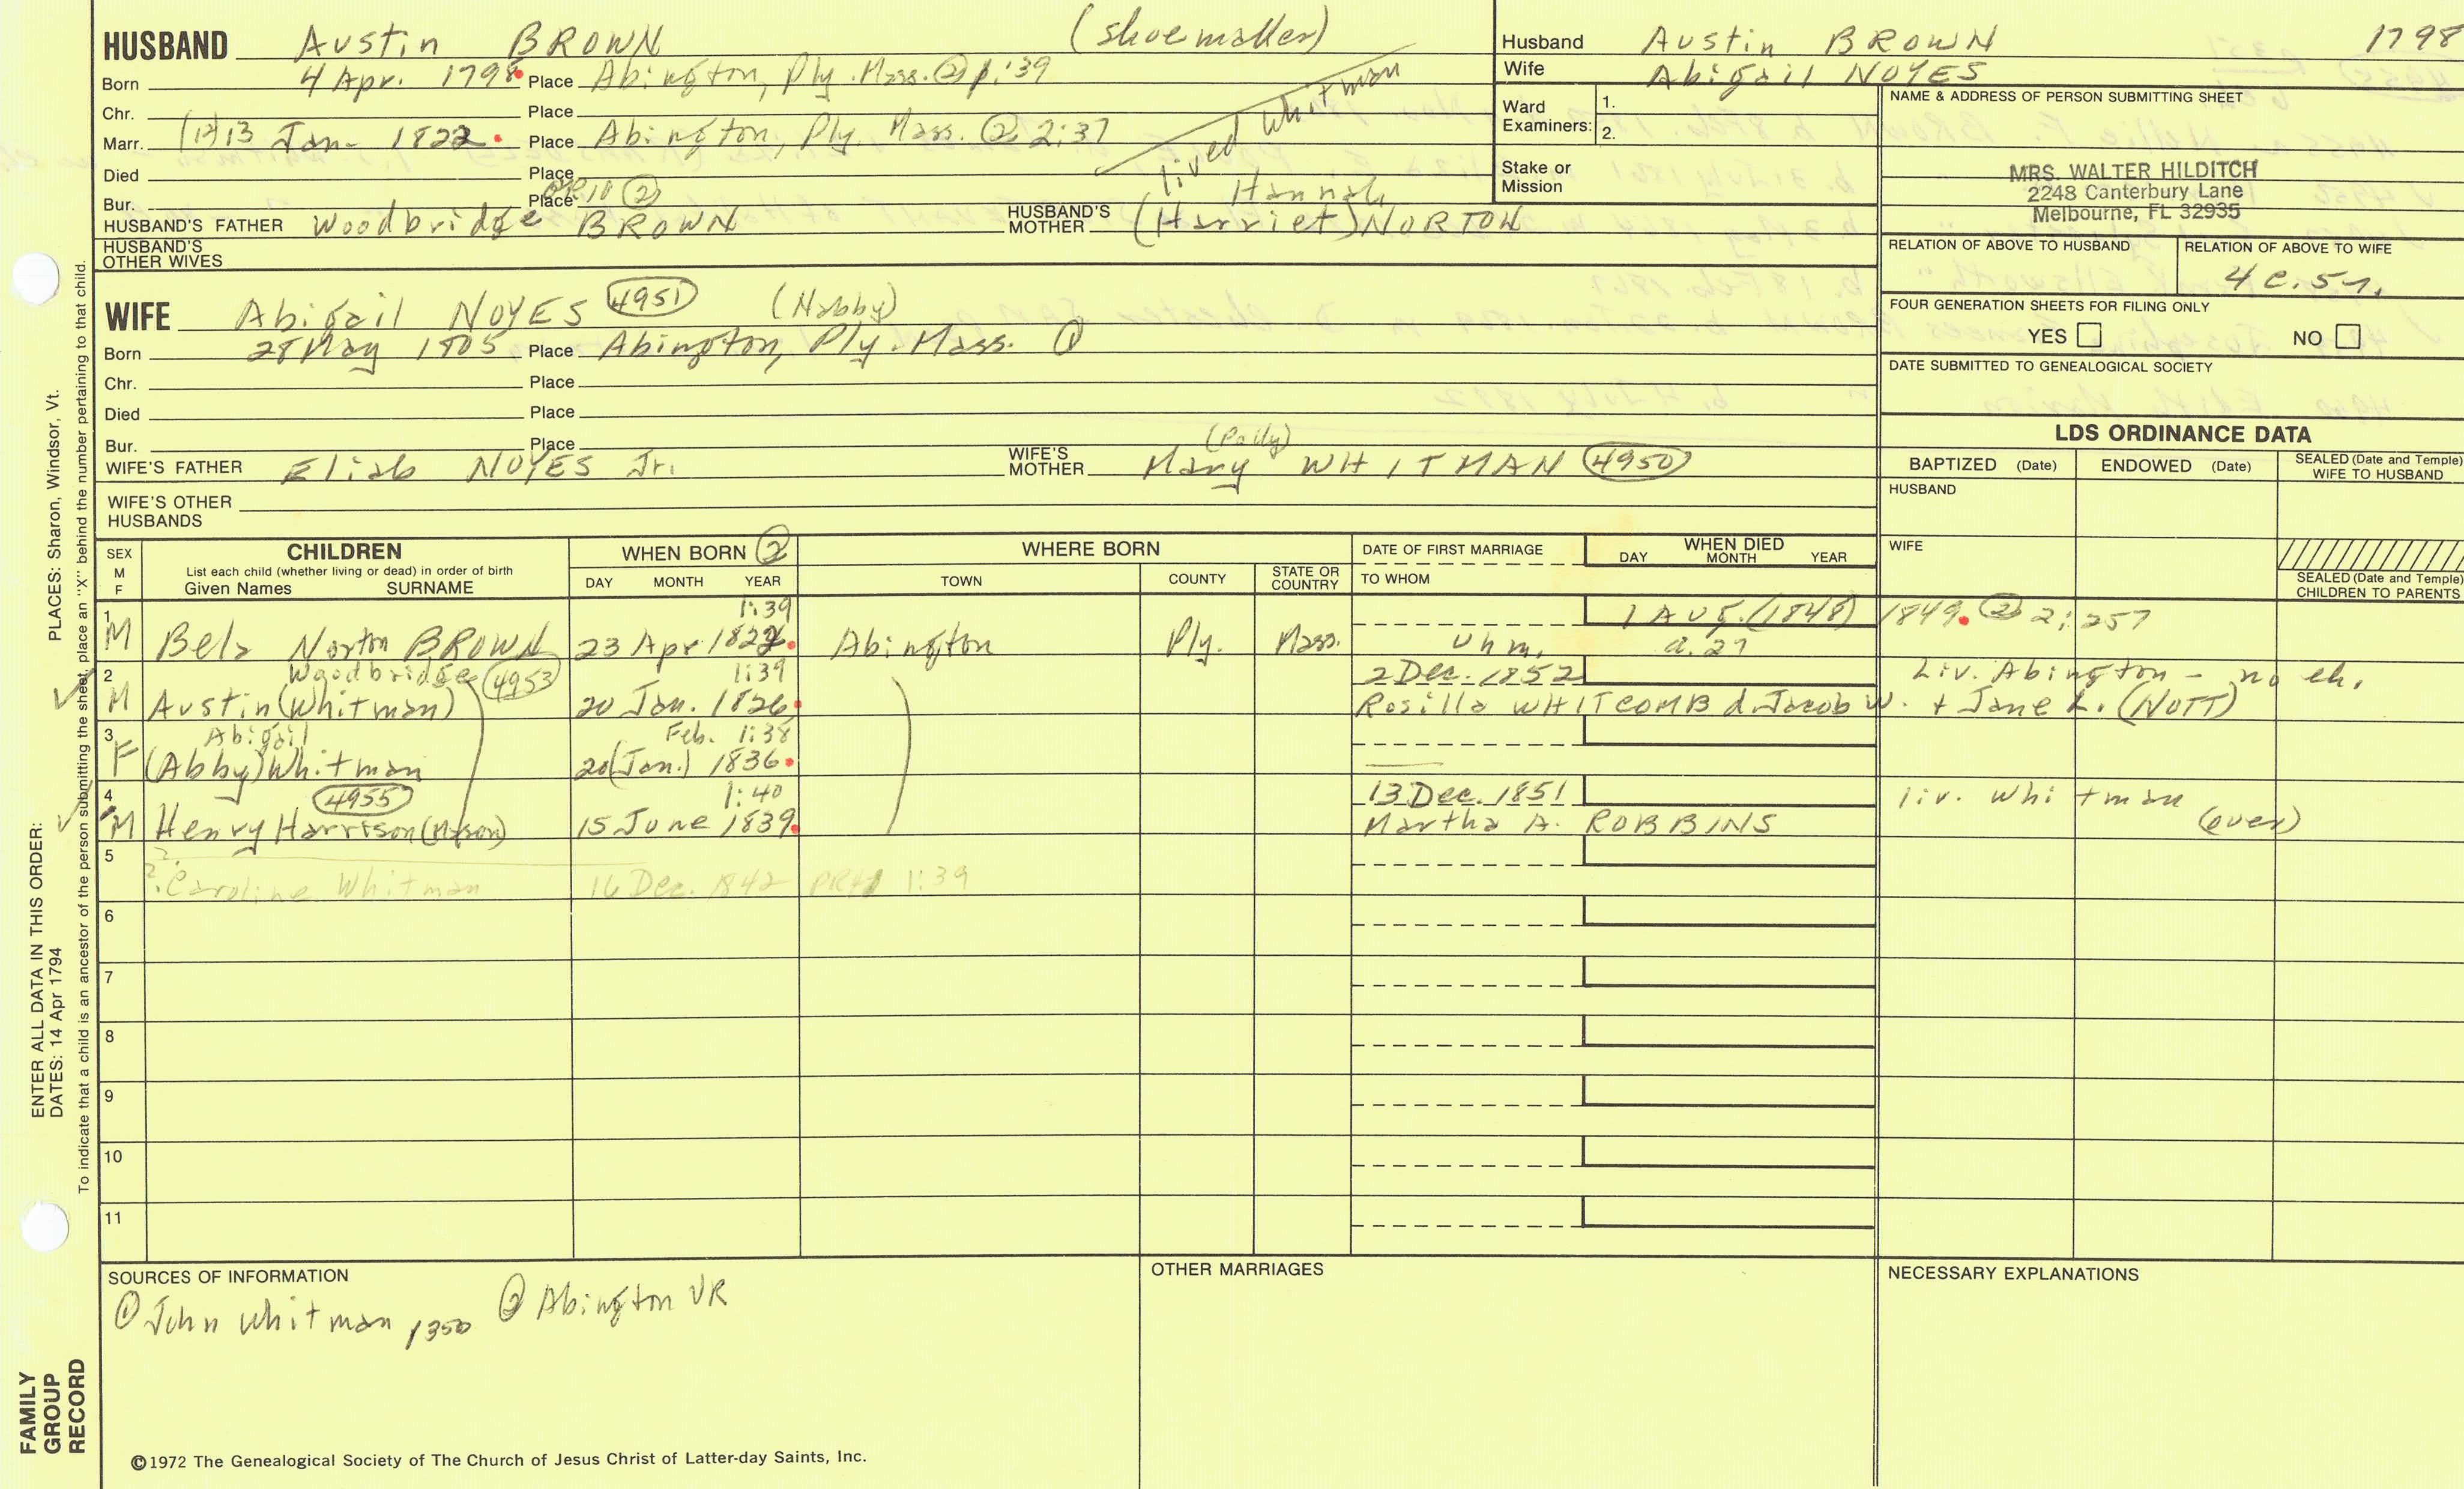 HUSBAND Austin BROWN (shoemaker)
Born 4 Apr. 1798 Place Abington, Ply. Mass. ② 1:39
Chr. Place
Marr. (12) 13 Jan. 1822 Place Abington, Ply. Mass. ② 2:37
lived Whitman
Died Place
Bur. Place GR10 ②
HUSBAND'S FATHER Woodbridge BROWN HUSBAND'S MOTHER Hannah (Harriet) NORTON
HUSBAND'S OTHER WIVES
WIFE Abigail NOYES 4951 (Nabby)
Born 28 May 1805 Place Abington, Ply. Mass. ①
Chr. Place
Died Place
Bur. Place
WIFE'S FATHER Eliab NOYES Jr. WIFE'S MOTHER (Polly) Mary WHITMAN 4950
WIFE'S OTHER HUSBANDS
Husband Austin BROWN 1798
Wife Abigail NOYES
Ward Examiners: 1.
2.
Stake or Mission
NAME & ADDRESS OF PERSON SUBMITTING SHEET
MRS. WALTER HILDITCH
2248 Canterbury Lane
Melbourne, FL 32935
RELATION OF ABOVE TO HUSBAND RELATION OF ABOVE TO WIFE
4c.5r.
FOUR GENERATION SHEETS FOR FILING ONLY
YES NO
DATE SUBMITTED TO GENEALOGICAL SOCIETY
LDS ORDINANCE DATA
BAPTIZED (Date) ENDOWED (Date) SEALED (Date and Temple) WIFE TO HUSBAND
HUSBAND
WIFE
SEALED (Date and Temple) CHILDREN TO PARENTS
SEX M F CHILDREN WHEN BORN ② WHERE BORN DATE OF FIRST MARRIAGE WHEN DIED
List each child (whether living or dead) in order of birth
Given Names SURNAME DAY MONTH YEAR TOWN COUNTY STATE OR COUNTRY TO WHOM DAY MONTH YEAR
1 1:39 1 Aug. (1848) 1849. ② 2:257
M Bela Norton BROWN 23 Apr 1822 Abington Ply. Mass. unm. a. 27
2 Woodbridge 4953 1:39 2 Dec. 1852 Liv. Abington - no ch.
M Austin (Whitman) 20 Jan. 1826 Rosilla WHITCOMB d. Jacob W. + Jane L. (NOTT)
3 Abigail Feb. 1:38
F (Abby) Whitman 20 (Jan.) 1836
4 4955 1:40 13 Dec. 1851 liv. Whitman
M Henry Harrison (Mason) 15 June 1839 Martha A. ROBBINS (over)
5 ?
? Caroline Whitman 16 Dec. 1842 1:39
6
7
8
9
10
11
SOURCES OF INFORMATION
① John Whitman p350 ② Abington VR
OTHER MARRIAGES
NECESSARY EXPLANATIONS
©1972 The Genealogical Society of The Church of Jesus Christ of Latter-day Saints, Inc.
FAMILY GROUP RECORD
ENTER ALL DATA IN THIS ORDER: PLACES: Sharon, Windsor, Vt.
DATES: 14 Apr 1794
To indicate that a child is an ancestor of the person submitting the sheet, place an "X" behind the number pertaining to that child.